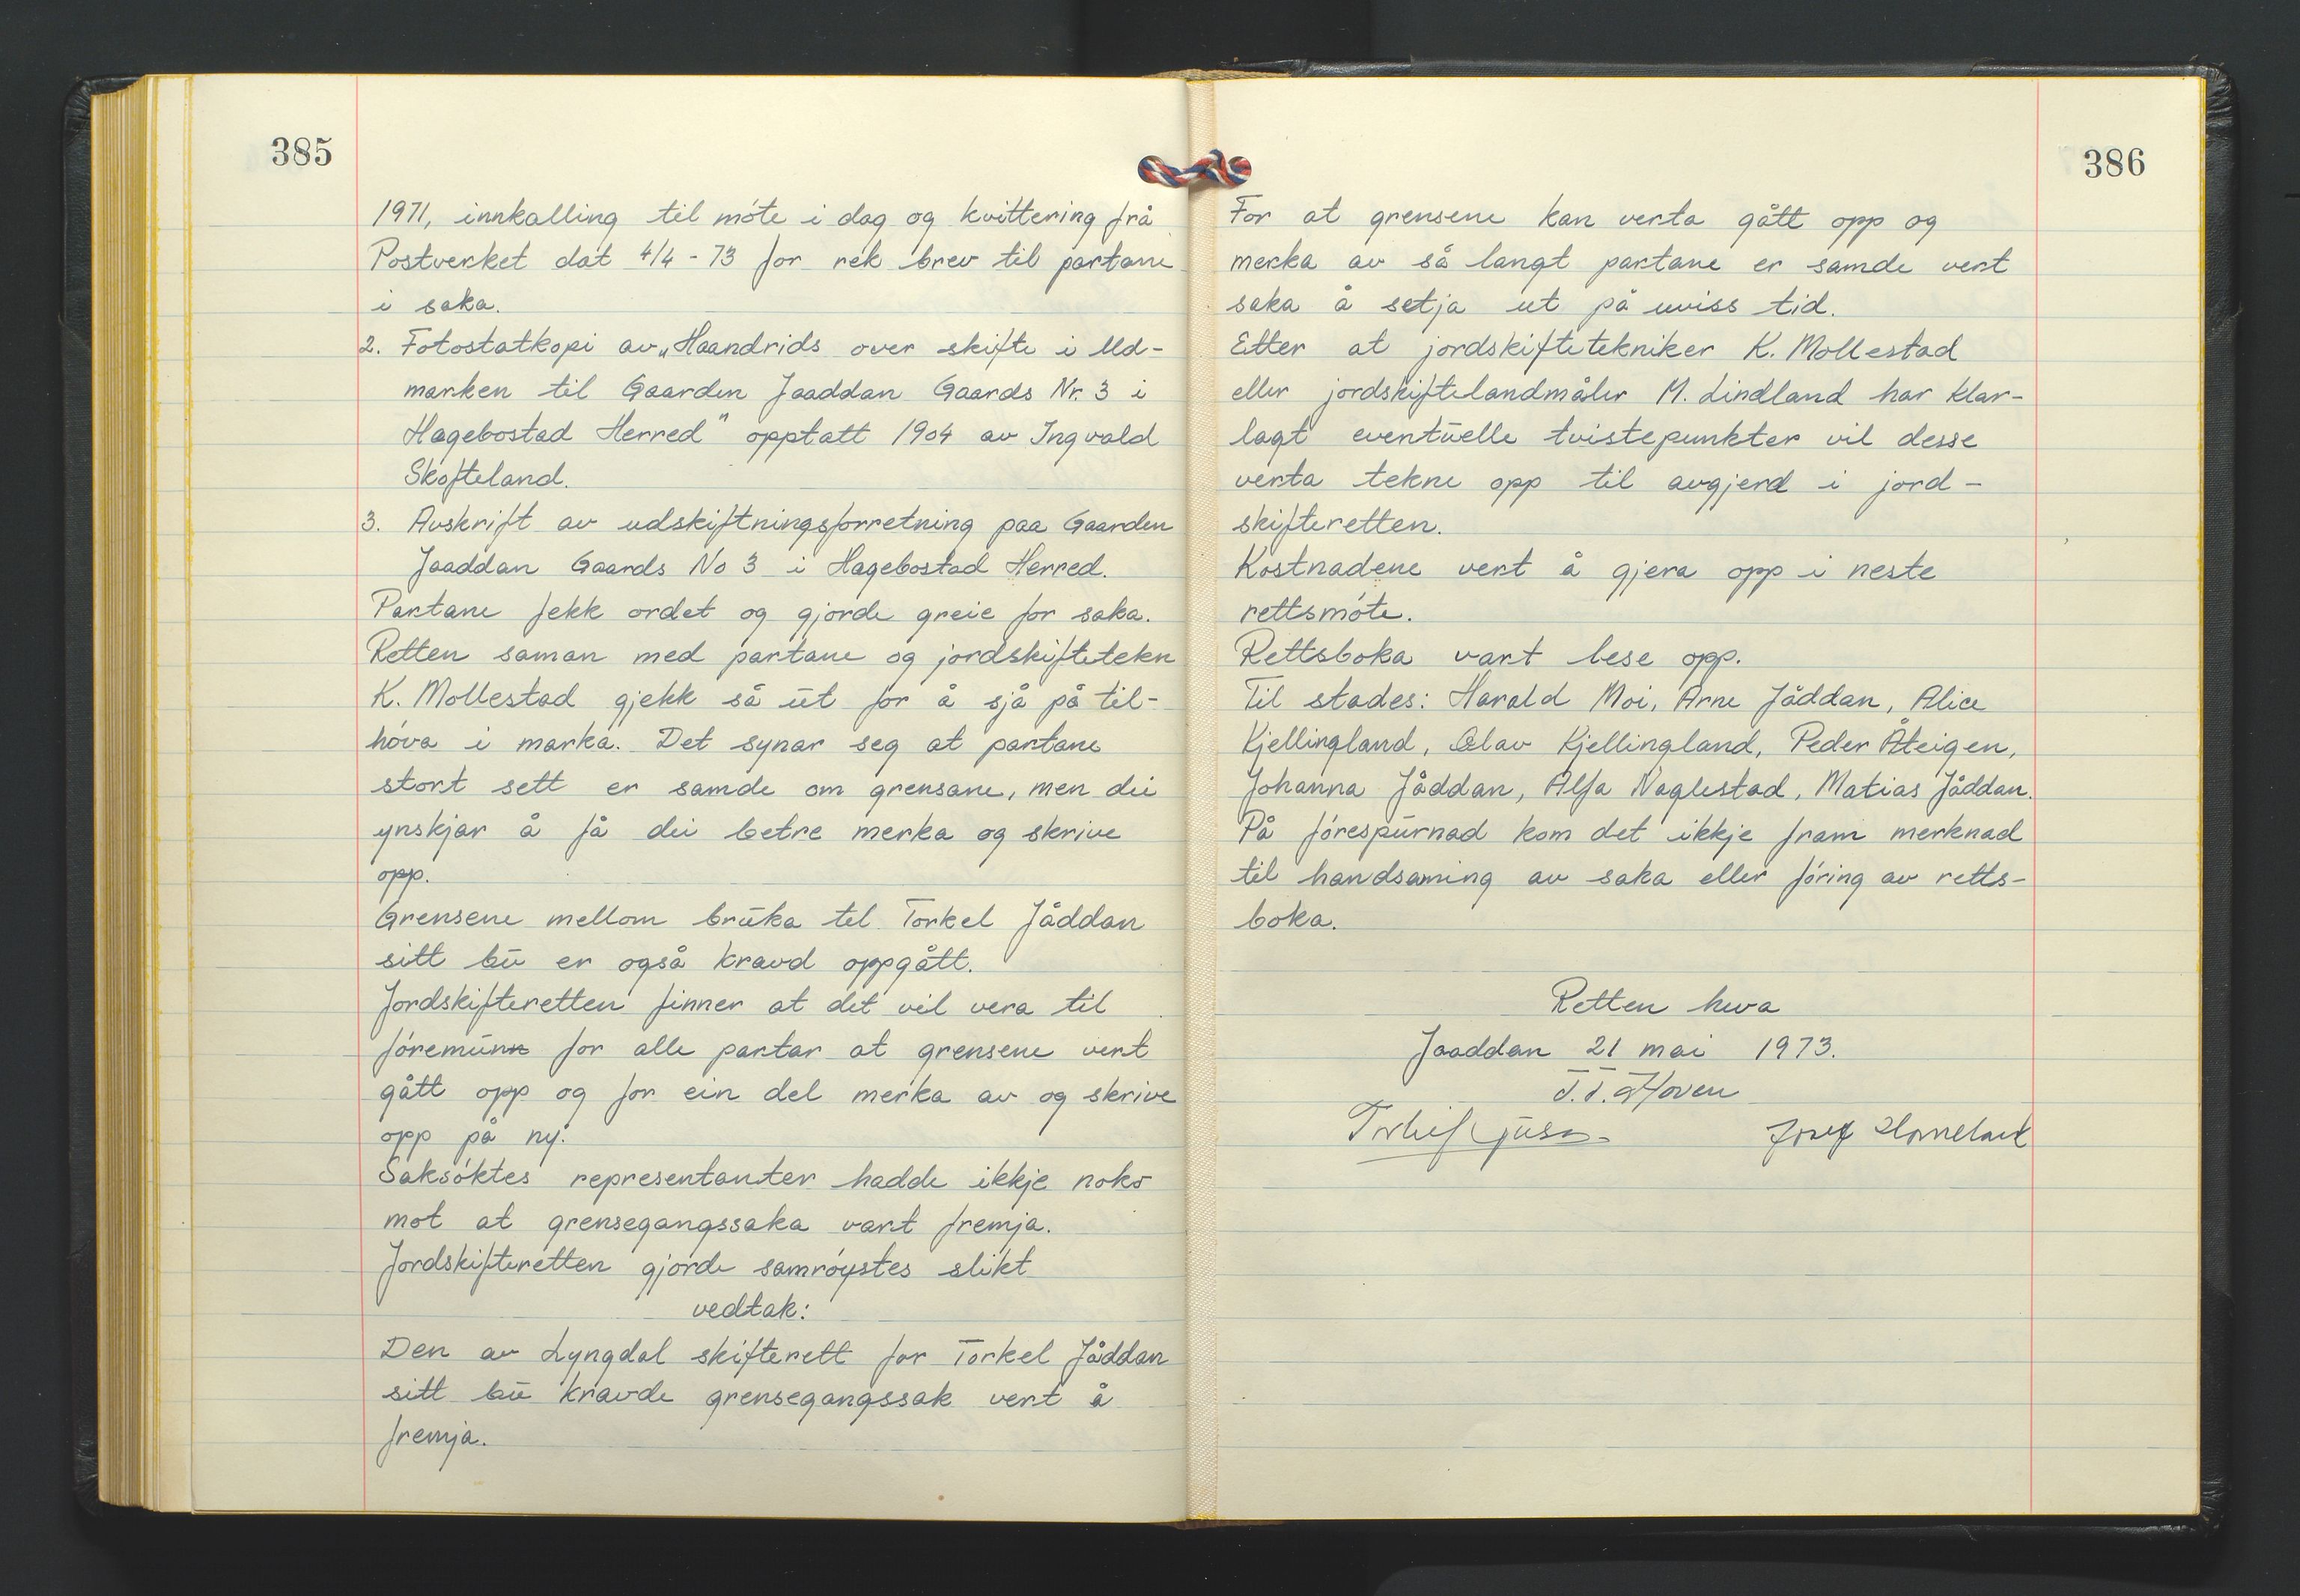 385
1971, innkalling til móte i dag og kvittering frå
Postverket dat 4/4 - 73 for rek brev til partane
i saka.
2. Fotostatkopi av „Haandrids over skifte i Ud-
marken til Gaarden Jaaddan Gaards Nr. 3 i
Hagebostad Herred" opptatt 1904 av Ingvald
Skofteland.
3. Avskrift av udskiftningsforretning paa Gaarden
Jaaddan Gaards No 3 i Hagebostad Herred.
Partane fekk ordet og gjorde greie for saka.
Retten saman med partane og jordskiftetekn
K. Mollestad gjekk så ut for å sjå på til-
hóva i marka. Det synar seg at partane
stort sett er samde om grensane, men dei
ynskjar å få dei betre merka og skrive
opp.
Grensene mellom bruka til Torkel Jåddan
sitt bu er også kravd oppgått.
Jordskifteretten finner at det vil vera til
fóremunn for alle partar at grensene vert
gått opp og for ein del merka av og skrive
opp på ny.
Saksóktes representanter hadde ikkje noko
mot at grensegangssaka vart fremja.
Jordskifteretten gjorde samróystes slikt
vedtak:
Den av Lyngdal skifterett for Torkel Jåddan
sitt bu kravde grensegangssak vert å
fremja.
386
For at grensene kan verta gått opp og
merka av så langt partane er samde vert
saka å setja ut på uviss tid.
Etter at jordskiftetekniker K. Mollestad
eller jordskiftelandmåler M. Lindland har klar-
lagt eventuelle tvistepunkter vil desse
verta tekne opp til avgjerd i jord-
skifteretten.
Kostnadene vert å gjera opp i neste
rettsmóte.
Rettsboka vart lese opp.
Til stades: Harald Moi, Arne Jåddan, Alice
Kjellingland, Olav Kjellingland, Peder Åteigen,
Johanna Jåddan, Alfa Naglestad, Matias Jåddan.
På fórespurnad kom det ikkje fram merknad
til handsaming av saka eller fóring av retts-
boka.
Retten heva
Jaaddan 21 mai 1973.
T. T. Hoven
Josef